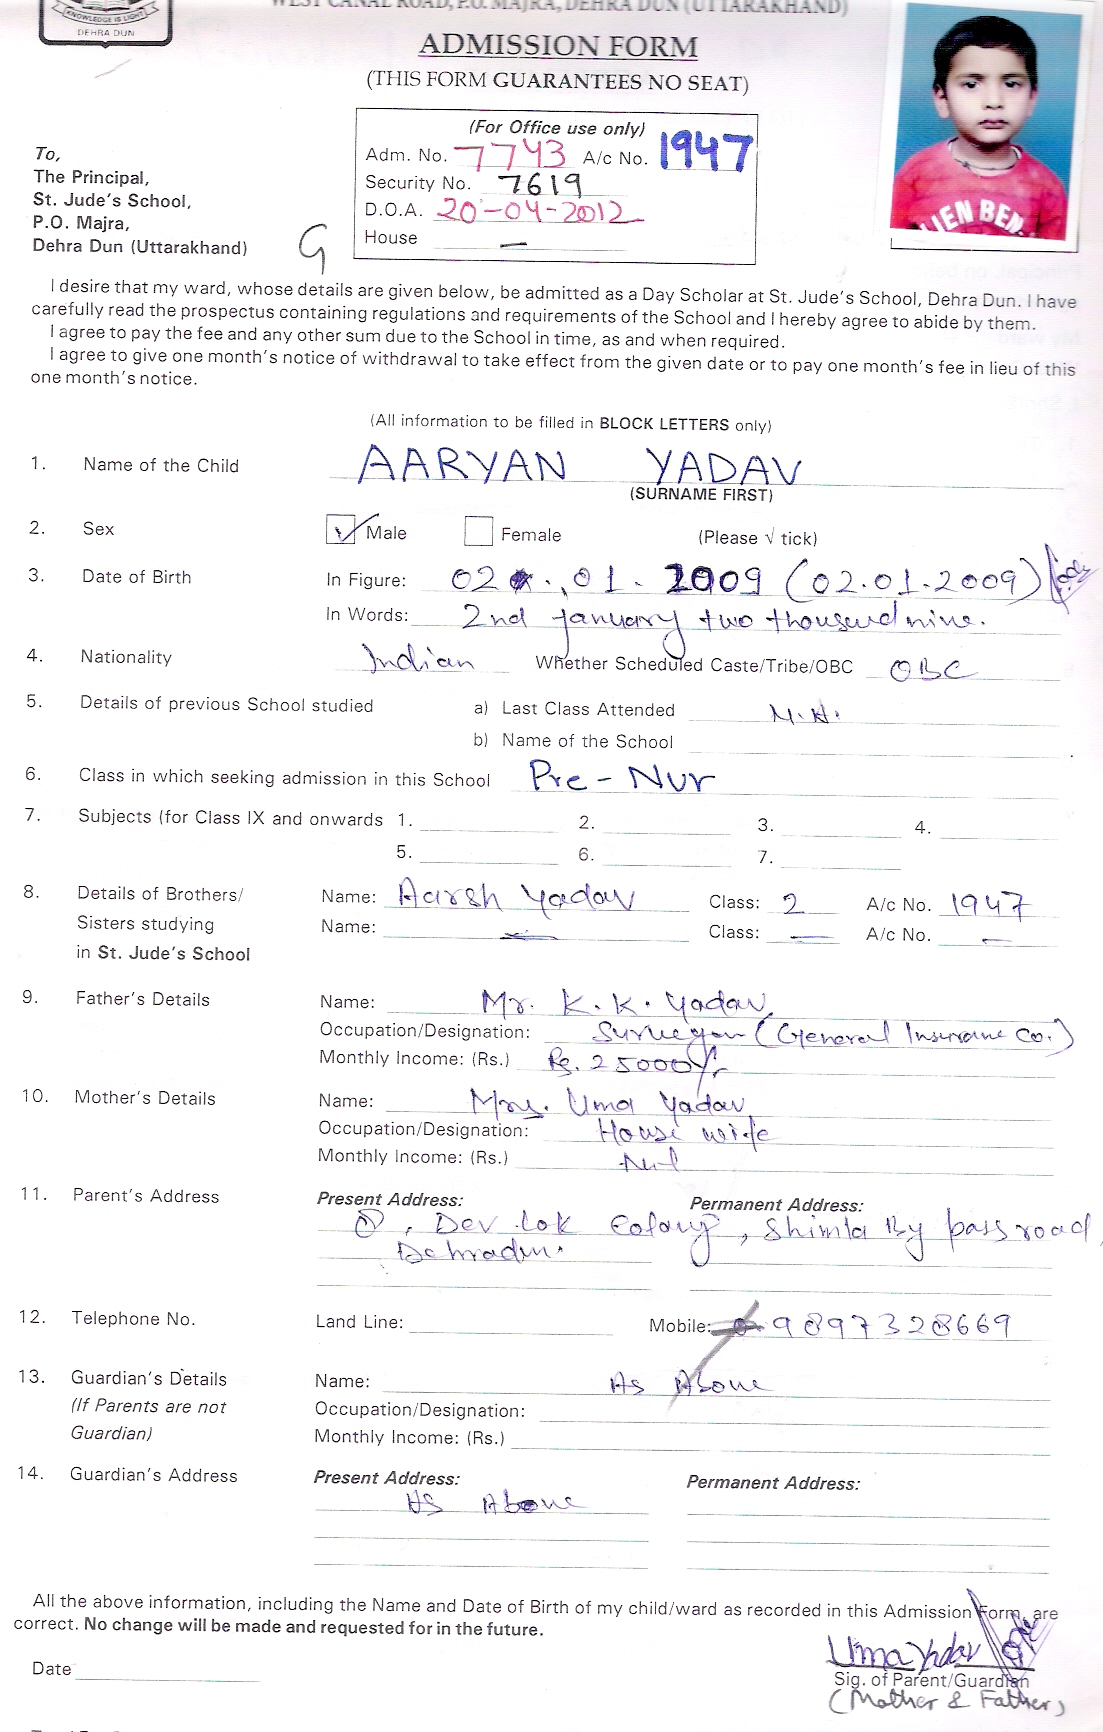 WEST CANAL ROAD, P.O. MAJRA, DEHRA DUN (UTTARAKHAND)
KNOWLEDGE IS LIGHT
DEHRA DUN
ADMISSION FORM
(THIS FORM GUARANTEES NO SEAT)
(For Office use only)
Adm. No. 7743 A/c No. 1947
Security No. 7619
D.O.A. 20-04-2012
House —
To,
The Principal,
St. Jude's School,
P.O. Majra,
Dehra Dun (Uttarakhand)
G
LIEN BEN
I desire that my ward, whose details are given below, be admitted as a Day Scholar at St. Jude's School, Dehra Dun. I have
carefully read the prospectus containing regulations and requirements of the School and I hereby agree to abide by them.
I agree to pay the fee and any other sum due to the School in time, as and when required.
I agree to give one month's notice of withdrawal to take effect from the given date or to pay one month's fee in lieu of this
one month's notice.
(All information to be filled in BLOCK LETTERS only)
1. Name of the Child AARYAN YADAV
(SURNAME FIRST)
2. Sex Male Female (Please √ tick)
3. Date of Birth In Figure: 02 . 01 . 2009 (02.01.2009)
In Words: 2nd january two thousand nine.
4. Nationality Indian Whether Scheduled Caste/Tribe/OBC OBC
5. Details of previous School studied a) Last Class Attended N.A.
b) Name of the School
6. Class in which seeking admission in this School Pre-Nur
7. Subjects (for Class IX and onwards 1. 2. 3. 4.
5. 6. 7.
8. Details of Brothers/ Name: Aarsh Yadav Class: 2 A/c No. 1947
Sisters studying Name: — Class: — A/c No. —
in St. Jude's School
9. Father's Details Name: Mr. K.K. Yadav
Occupation/Designation: Surveyor (General Insurance Co.)
Monthly Income: (Rs.) Rs. 25000/-
10. Mother's Details Name: Mrs. Uma Yadav
Occupation/Designation: House wife
Monthly Income: (Rs.) Nil
11. Parent's Address Present Address: Permanent Address:
, Dev Lok Colony, Shimla By pass road,
Dehradun.
12. Telephone No. Land Line: Mobile: 9897328669
13. Guardian's Details Name: As Above
(If Parents are not Occupation/Designation:
Guardian) Monthly Income: (Rs.)
14. Guardian's Address Present Address: Permanent Address:
As Above
All the above information, including the Name and Date of Birth of my child/ward as recorded in this Admission Form, are
correct. No change will be made and requested for in the future.
Uma Yadav
Date Sig. of Parent/Guardian
(Mother & Father)